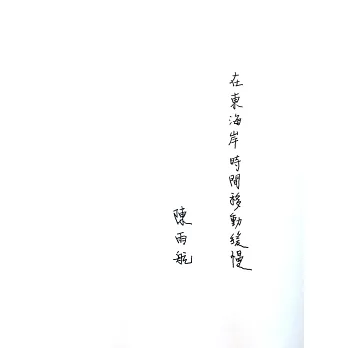 在東海岸時間移動緩慢
陳雨航